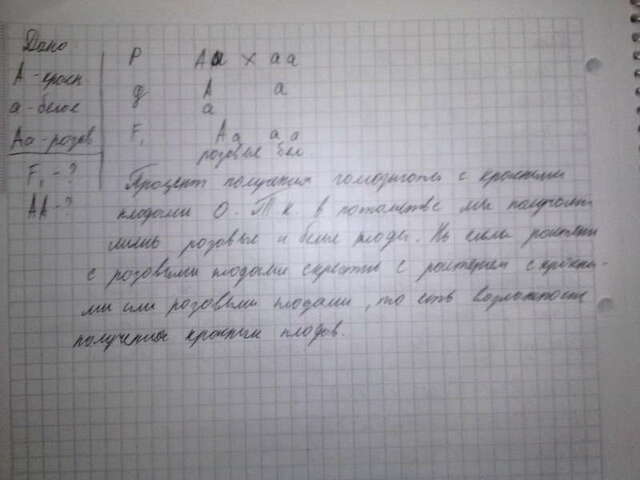 Дано
А - красн
а - белое
Аа - розов
F₁ - ?
АА - ?
Р Аа х аа
g А а
а
F₁ Аа аа
розовые бел
Процент получения гомозиготы с красными
плодами 0. Т К в потомстве мы получаем
лишь розовые и белые плоды. Но если растение
с розовыми плодами скрестить с растением с красны-
ми или розовыми плодами, то есть возможность
получения красных плодов.